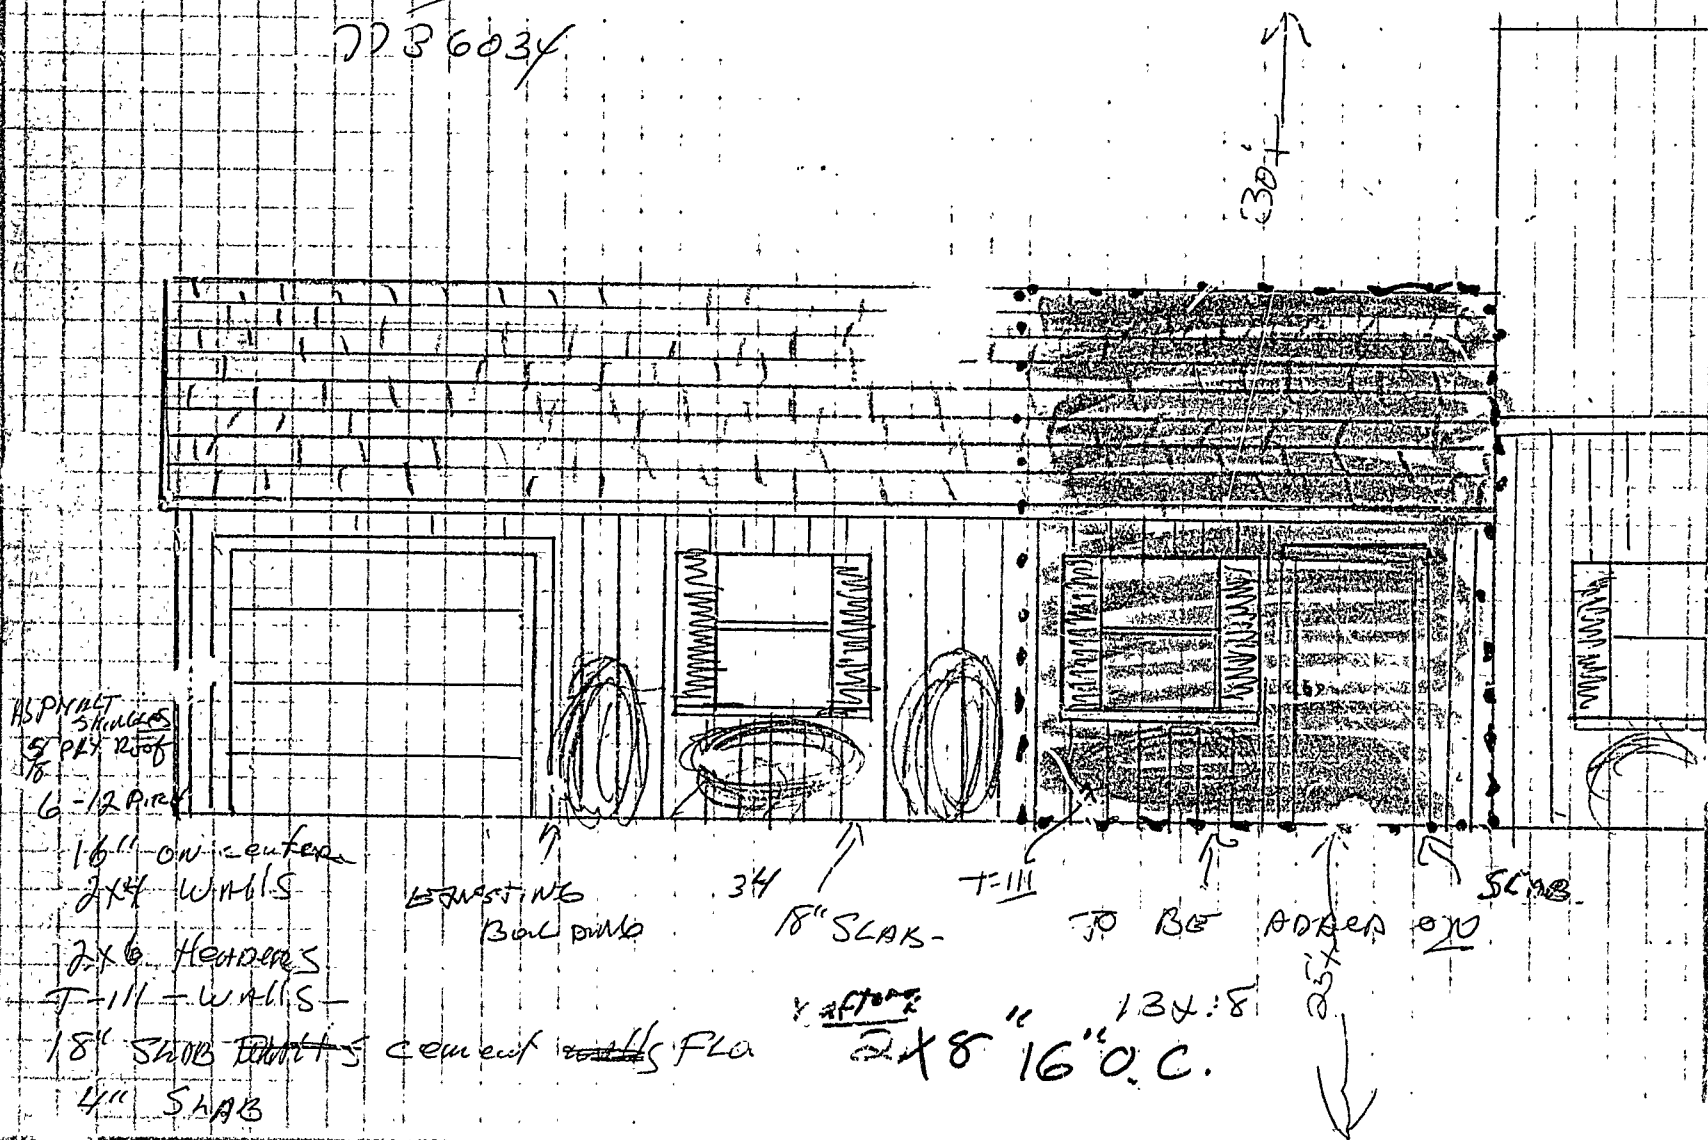 7736034
30'+
ASPHALT
SHINGLES
5/8 PLY Roof
6-12 PITCH
16" ON center
2x4 WALLS
2x6 Headers
T-111 - WALLS -
18" SLAB cement FLO
4" SLAB
EXISTING
BUILDING
34
18" SLAB -
T-111
TO BE ADDED ON
SLAB
rafters
2x8" 16" O.C.
25'+